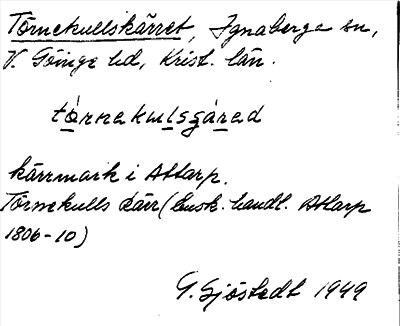 Törnekullskärret, Ignaberga sn,
V. Göinge hd, Krist. län.
tòrnekulsgárad
kärrmark i Attarp.
Törnekulls kärr (Ensk. handl. Attarp
1806-10)
G. Sjöstedt 1949